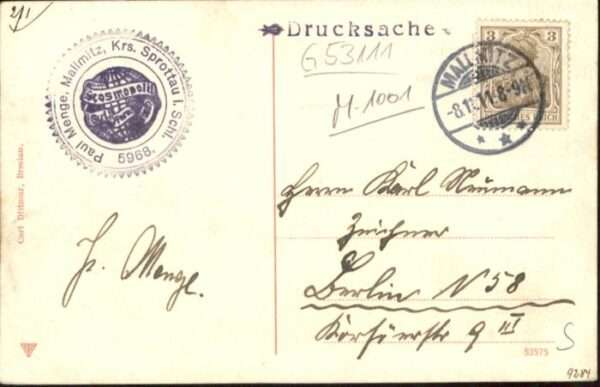 2/1
Drucksache
G 53111
M-1001
Paul Menge, Mallmitz, Krs. Sprottau i. Schl.
Kosmopolit
5968.
3 3
MALLMITZ
-8.11.11.8-9
REICH
Herrn Karl Neumann
Zeichner
Berlin N 58
9 III
P. Menge.
Carl Dittmar, Breslau.
53575
S
9284